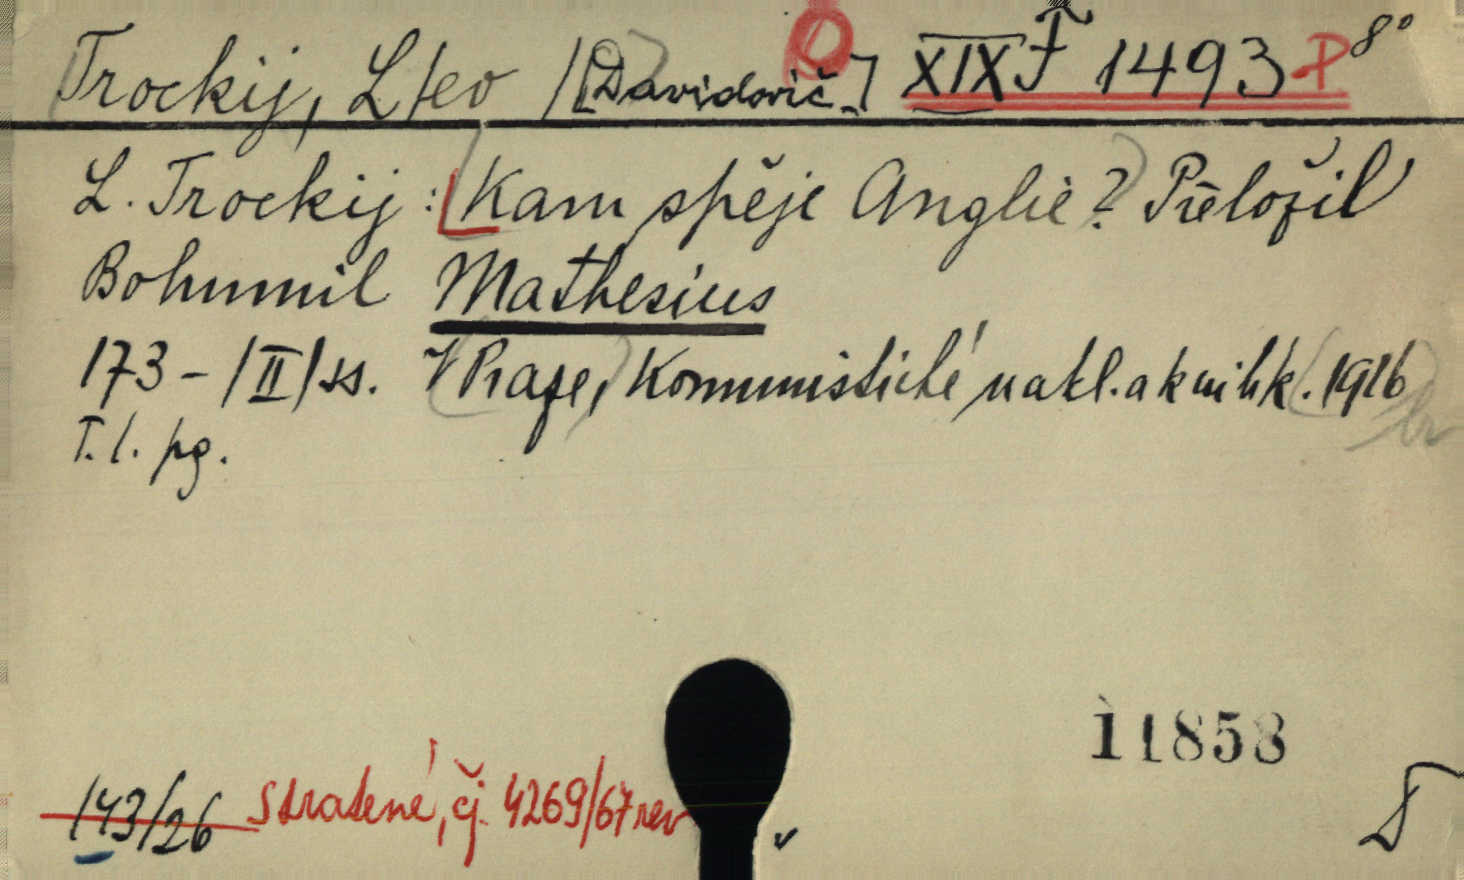 Trockij, L/ev /[Davidovič] XIX F 1493 P 8°
L. Trockij: Kam spěje Anglie? Přeložil
Bohumil Mathesius
173-/II/ss. V Praze, Komunistické nakl. a knihk. 1926
T. l. pg.
11858
143/26 Stratené, čj. 4269/67 rev